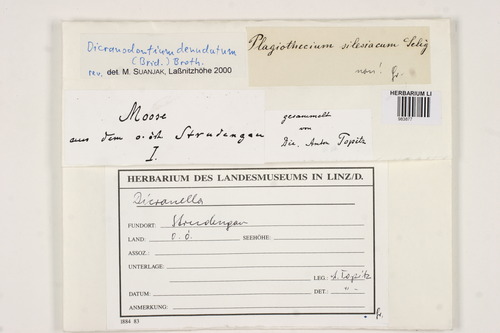 Dicranodontium denudatum
(Brid.) Broth.
rev. det. M. SUANJAK, Laßnitzhöhe 2000
Plagiothecium silesiacum Selig
non! fr.
HERBARIUM LI
Moose
aus dem o.öst. Strudengau
I.
gesammelt
von
Dir. Anton Topitz
HERBARIUM DES LANDESMUSEUMS IN LINZ/D.
Dicranella
FUNDORT: Strudengau
LAND: O.Ö. SEEHÖHE:
ASSOZ.:
UNTERLAGE:
LEG.: A. Topitz
DATUM: DET.: "-
ANMERKUNG: fr.
1884 83